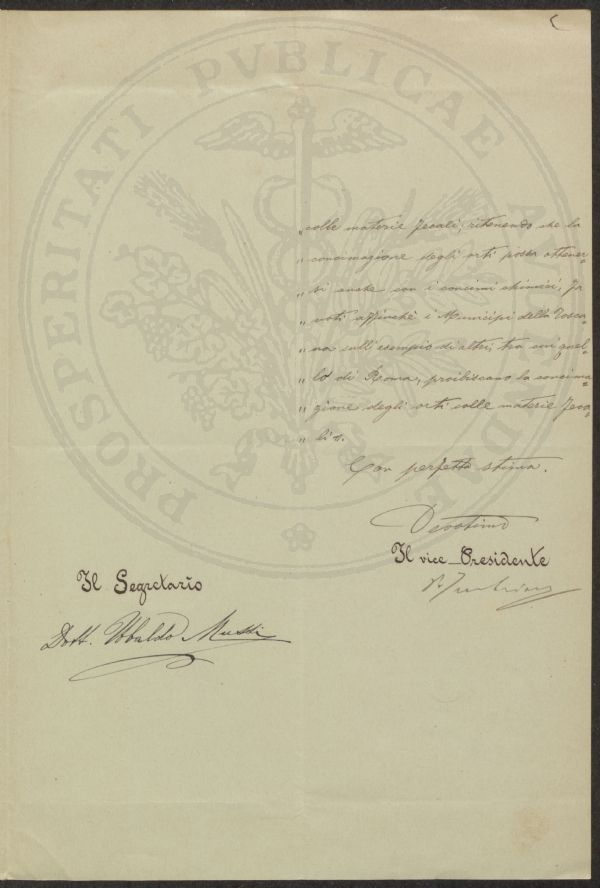 PROSPERITATI PVBLICAE AVGENDAE
„ colle materie fecali, ritenendo che la
„ concimazione degli orti possa ottener-
„ si anche con i concimi chimici, fa
„ voti affinchè i Municipi della Tosca-
„ na sull'esempio di altri, tra cui quel-
„ lo di Roma, proibiscano la concima-
„ zione degli orti colle materie feca-
„ li „.
Con perfetta stima.
Devotissimo
Il vice-Presidente
Il Segretario
Dott. Ubaldo Mussi